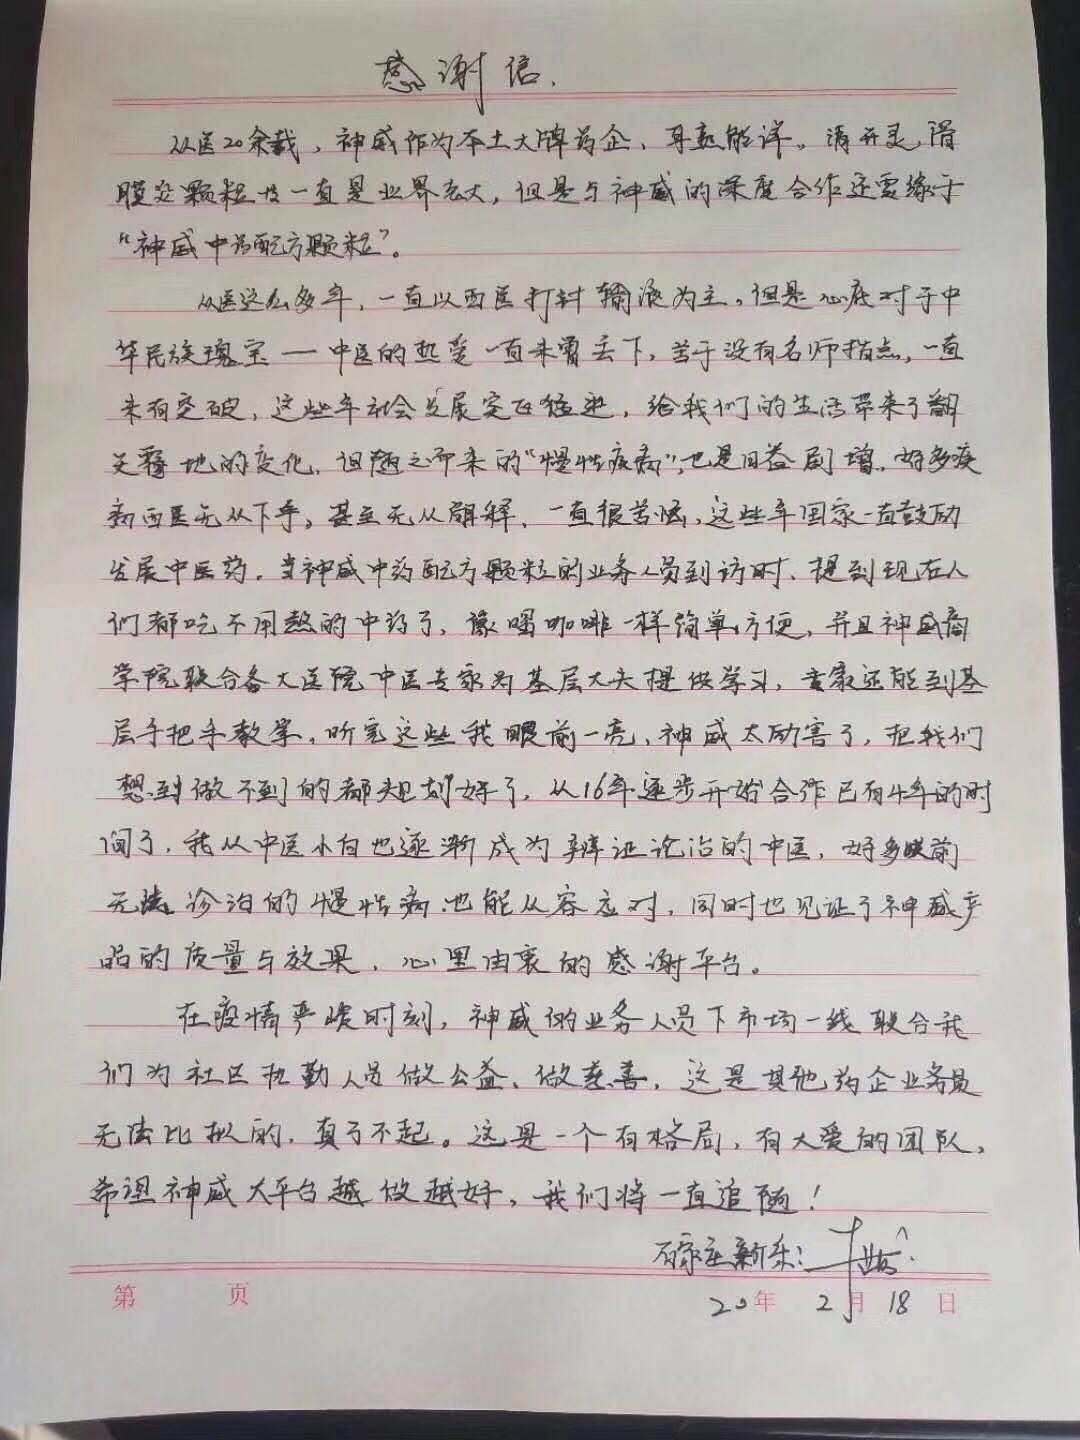 感谢信.
从医20余载，神威作为本土大牌药企，耳熟能详。清开灵，滑
膜炎颗粒 一直是业界老大，但是与神威的深度合作还要缘于
“神威中药配方颗粒”。
从医这么多年，一直以西医打针输液为主，但是心底对于中
华民族瑰宝—中医的热爱一直未曾丢下，苦于没有名师指点，一直
未有突破，这些年社会发展突飞猛进，给我们的生活带来了翻
天覆地的变化，但随之而来的“慢性疾病”，也是日益剧增，好多疾
病西医无从下手，甚至无从解释，一直很苦恼，这些年国家一直鼓励
发展中医药，当神威中药配方颗粒的业务人员到访时，提到现在人
们都吃不用熬的中药了，像喝咖啡一样简单，方便，并且神威商
学院联合各大医院中医专家为基层大夫提供学习，专家还能到基
层手把手教学，听完这些我眼前一亮，神威太励害了，把我们
想到做不到的都规划好了，从16年逐步开始合作已有4年的时
间了，我从中医小白也逐渐成为辨证论治的中医，好多以前
无法诊治的慢性病也能从容应对，同时也见证了神威产
品的质量与效果，心里由衷的感谢平台。
在疫情严峻时刻，神威的业务人员下市场一线联合我
们为社区执勤人员做公益、做慈善，这是其他药企业务员
无法比拟的，真了不起。这是一个有格局，有大爱的团队，
希望神威大平台越做越好，我们将一直追随！
石家庄新乐：
第 页 20年 2月 18日